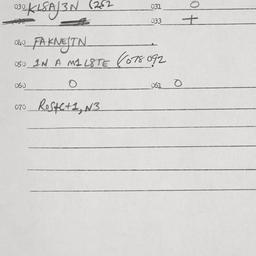 030 KL8AJ3N (262 031 0
033 +
040 FAKNEJTN
050 1N A M1L8TE (078 092
060 0 061 0
070 RoStC+1, N3